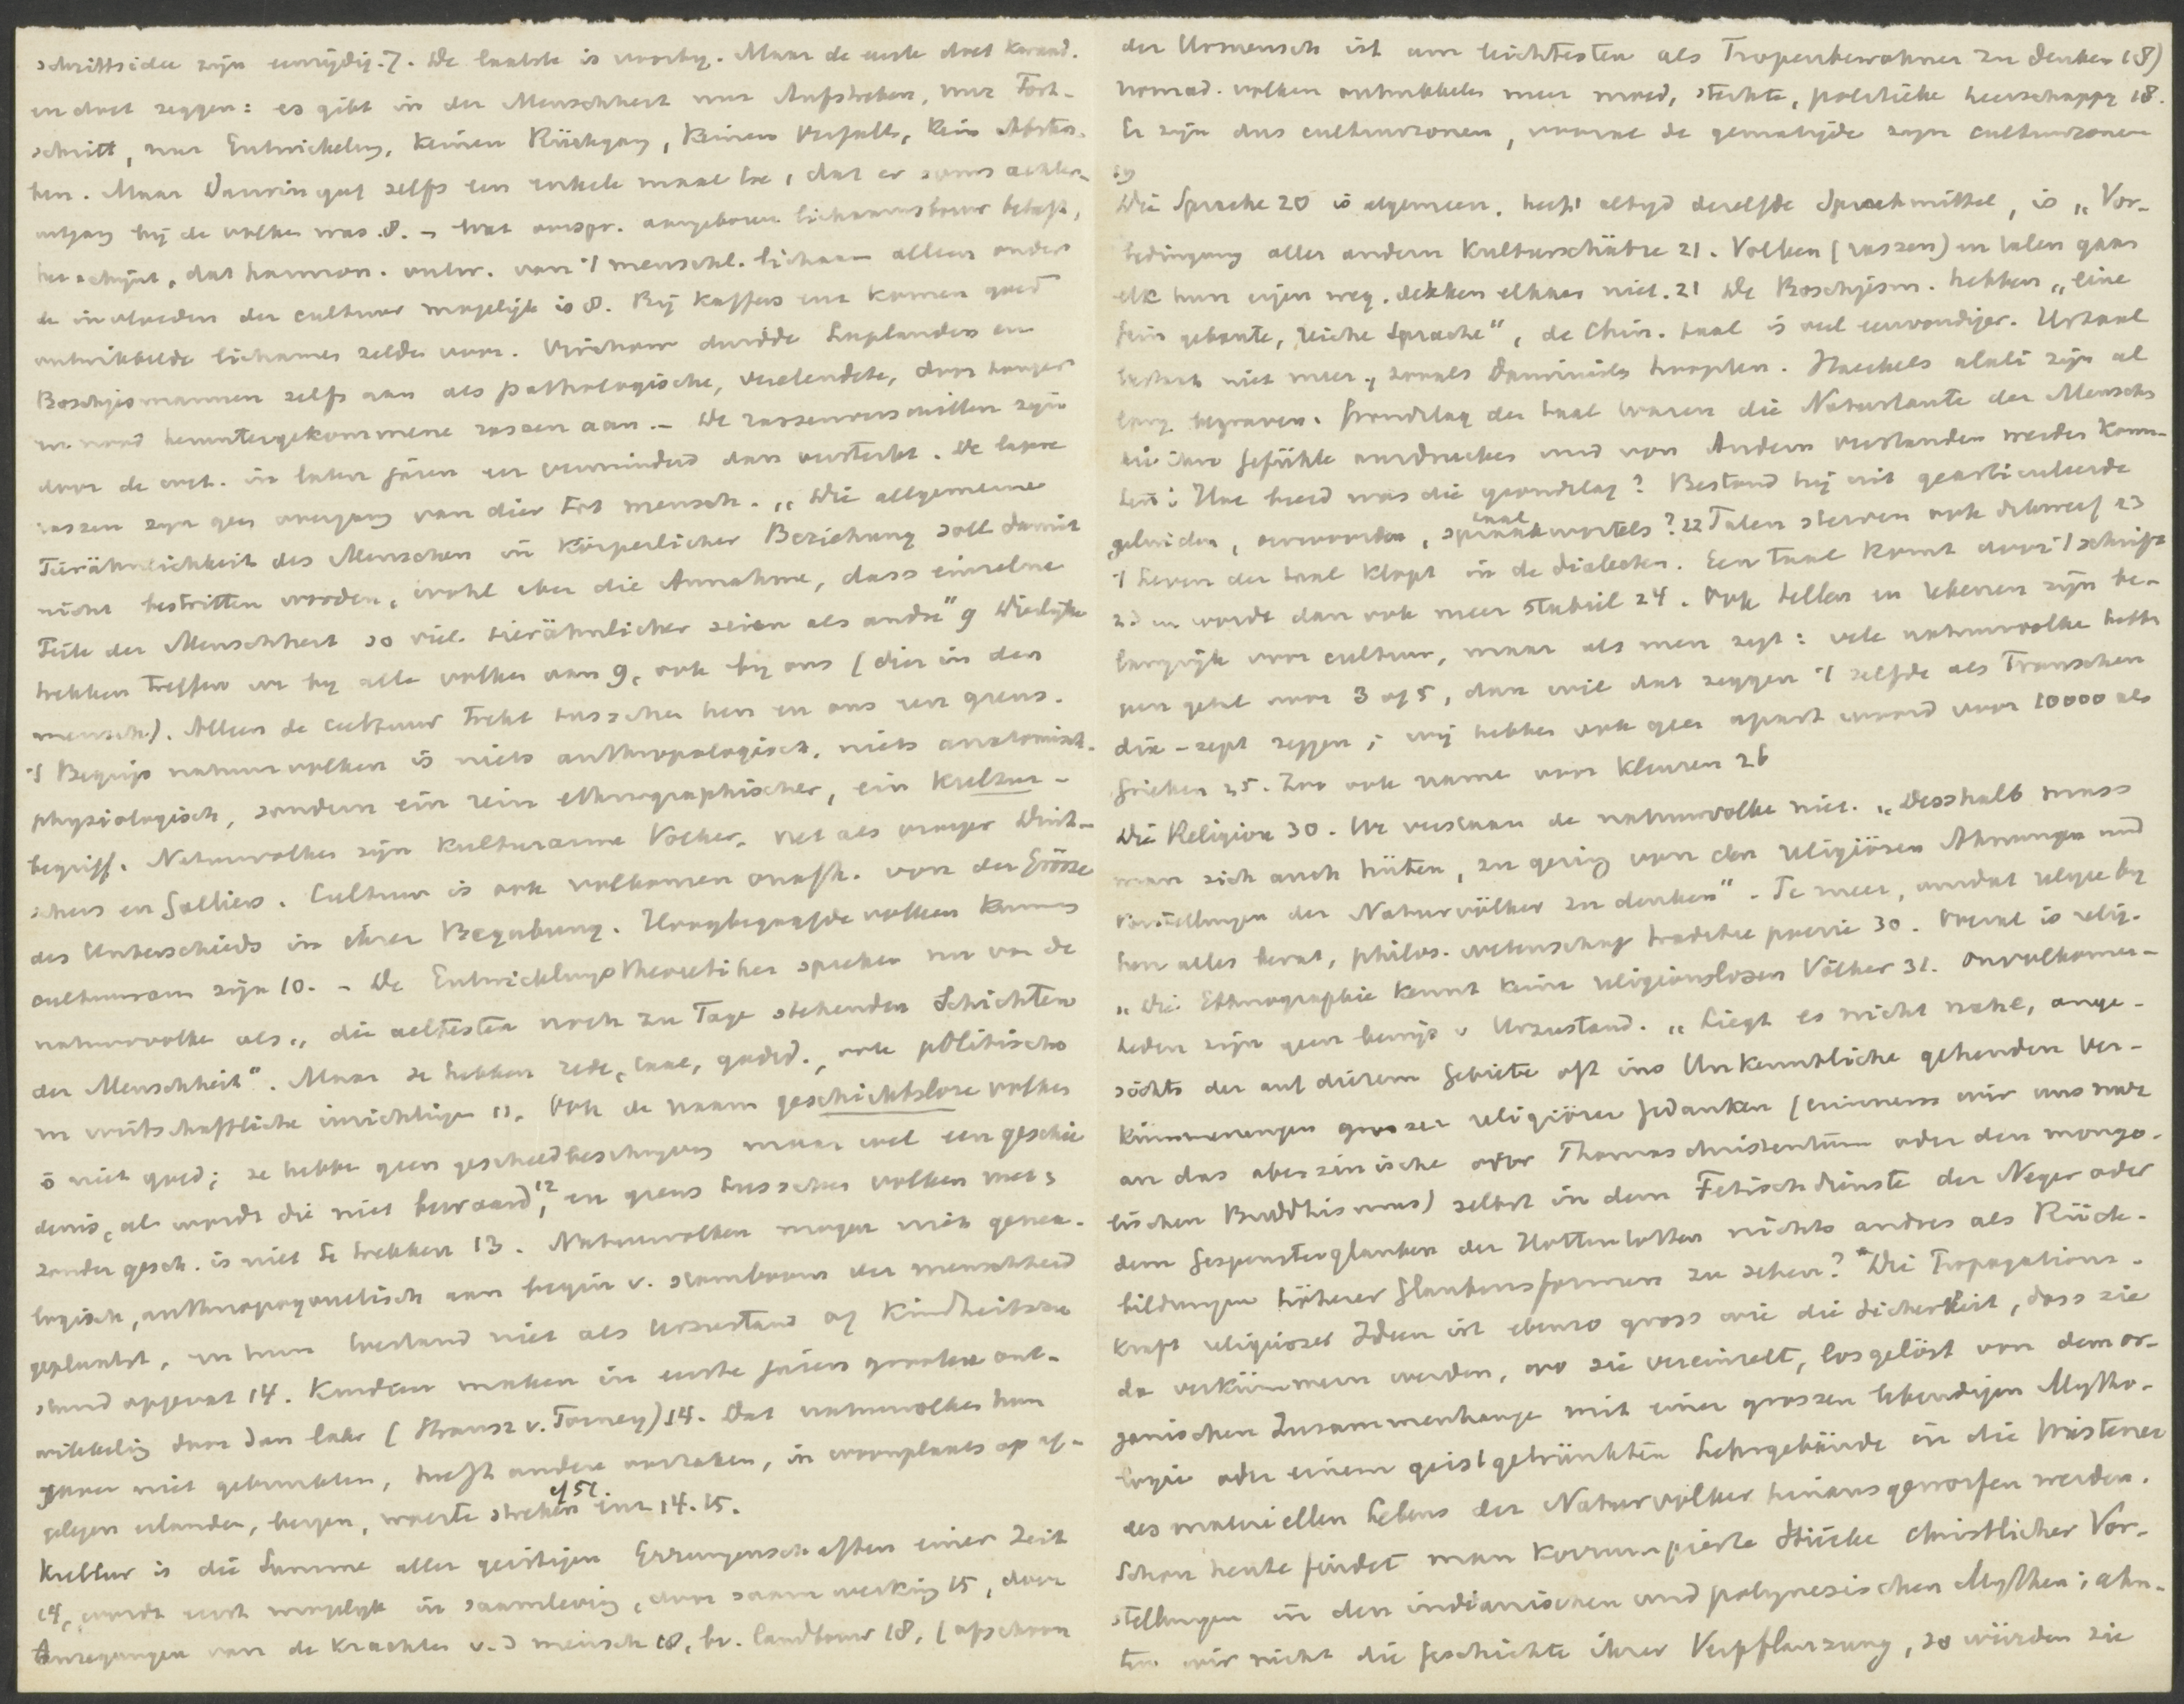 schrittsidee zijn eenzijdig. 7. De laatste is voorbij. Maar de eerste doet Karand.
en doet zeggen: es gibt in der Menschheit nur Aufstreben, nur Fort-
schritt, nur Entwickelung, keinen Rückgang, keinen Verfall, kein Abster-
ben. Maar Darwin gaf zelfs een enkele maal toe, dat er soms achter-
uitgang bij de volken was. 8. – Wat oorspr. aangeboren lichaamsbouw betreft,
het schijnt, dat harmon. ontw. van 't menschl. lichaam alleen onder
de invloeden der cultuur mogelijk is 8. Bij Kaffers enz komen goed
ontwikkelde lichamen zelden voor. Virchow duidde Laplanders en
Boschjesmannen zelfs aan als pathologische, verelendete, door honger
en nood heruntergekommene rassen aan. – De rassenverschillen zijn
door de cult. in later jaren eer verminderd dan versterkt. De lagere
rassen zijn geen overgang van dier tot mensch. „Die allgemeine
Tierähnlichkeit des Menschen in körperlicher Beziehung soll damit
nicht bestritten worden, wohl aber die Annahme, dass einzelne
Teile der Menschheit so viel tierähnlicher seien als andre" 9 Dierlijke
trekken treffen we bij alle volken aan 9, ook bij ons (dier in den
mensch). Alleen de cultuur trekt tusschen hen en ons een grens.
't Begrip natuurvolken is niets anthropologisch, niets anatomisch-
physiologisch, sondern ein rein ethnographischer, ein Kultur-
begriff. Natuurvolken zijn kulturarme Völker, net als vroeger Duit-
schers en Galliers. Cultuur is ook volkomen onafh. von der Grösse
des Unterschieds in ihrer Begabung. Hoogbegaafde volken kunnen
cultuurarm zijn 10. – De Entwicklungstheoretiker spreken nu van de
natuurvolken als „die aeltesten noch zu Tage stehenden Schichten
der Menschheit". Maar ze hebben rede, taal, godsd., ook politische
en wirtschaftliche inrichtingen 11. Ook de naam geschichtslose volken
is niet goed; ze hebben geen geschiedbeschrijving maar wel een geschie
denis, al wordt die niet bewaard,12 en grens tusschen volken met &
zonder gesch. is niet te trekken 13. Natuurvolken mogen niet genea-
logisch, anthropogenetisch aan begin v. stamboom der menschheid
geplaatst, en hun toestand niet als Urzustand of Kindheitszu
stand opgevat 14. Kinderen maken in eerste jaren grootere ont-
wikkeling door dan later (Strausz v. Torney) 14. Dat natuurvolken hun
gaven niet gebruikten, heeft andere oorzaken, in woonplaats op af-
gelegen eilanden, bergen, woeste streken enz 14. 15.
cf 57.
Kultur is die Summe aller geistigen Errungenschaften einer Zeit
14, wordt eerst mogelijk in saamleving, door saamwerking 15, door
Anregungen van de krachten v. d mensch 18, bv. landbouw 18, (ofschoon
der Urmensch ist am leichtesten als Tropenbewohner zu denken 18)
nomad. volken ontwikkelen meer moed, sterkte, politieke heerschappij 18.
Er zijn dus cultuurzonen, vooral de gematigde zijn cultuurzonen
19
Die Sprache 20 is algemeen, heeft altijd dezelfde Sprachmittel, is „Vor-
bedingung aller andern Kulturschätze 21. Volken (rassen) en talen gaan
elk hun eigen weg, dekken elkaar niet. 21 De Boschjesm. hebben „eine
fein gebaute, reiche Sprache", de Chin. taal is veel eenvoudiger. Urtaal
bestaat niet meer, zooals Darwinisten hoopten. Haeckels alali zijn al
lang begraven. Grondslag der taal waren die Naturlaute der Mensch
die ihre Gefühle ausdrucken und von Andern verstanden werden konn-
ten; Hoe breed was die grondslag? Bestond hij uit gearticuleerde
geluiden, oerwoorden, spraakwortels? 22 Talen sterven ook dikwerf 23
taal
't leven der taal klopt in de dialecten. Een taal komt door 't schrift
23 en wordt dan ook meer stabiel 24. Ook tellen en rekenen zijn be-
langrijk voor cultuur, maar als men zegt: vele natuurvolken hebben
een getal voor 3 of 5, dan wil dat zeggen 't zelfde als Franschen
dix-sept zeggen; wij hebben ook geen apart woord voor 10000 als
Grieken 25. Zoo ook name voor kleuren 26
Die Religion 30. We verstaan de natuurvolken niet. „Desshalb muss
man sich auch hüten, zu gering von den religiösen Ahnungen und
Vorstellungen der Naturvölker zu denken". Te meer, omdat religie bij
hen alles bevat, philos. wetenschap traditie poëzie 30. Overal is relig.
„Die Ethnographie kennt keine religionslosen Völker 31. Onvolkomen-
heden zijn geen bewijs v Urzustand. „Liegt es nicht nahe, ange-
sichts der auf diesem Gebiete oft ins Unkenntliche gehenden Ver-
kümmerungen grosser religiöser Gedanken (erinnern wir uns nur
an das abessinische oder Thomaschristentum oder den mongo-
lischen Buddhismus) selbst in dem Fetischdienste der Neger oder
dem Gespensterglauben der Hottentotten nichts andres als Rück-
bildungen höherer Glaubensformen zu sehen? "Die Propagations-
kraft religiöser Ideen ist ebenso gross wie die Sicherheit, dass sie
da verkümmern werden, wo sie vereinzelt, losgelöst von dem or-
ganischen Zusammenhange mit einer grossen lebendigen Mytho-
logie oder einem geistgetränkten Lehrgebäude in die Wüsteneien
des materiellen Lebens der Naturvölker hinausgeworfen werden.
Schon heute findet man korrumpierte Stücke christlicher Vor-
stellungen in den indianischen und polynesischen Mythen; ahn-
ten wir nicht die Geschichte ihrer Verpflanzung, so würden sie